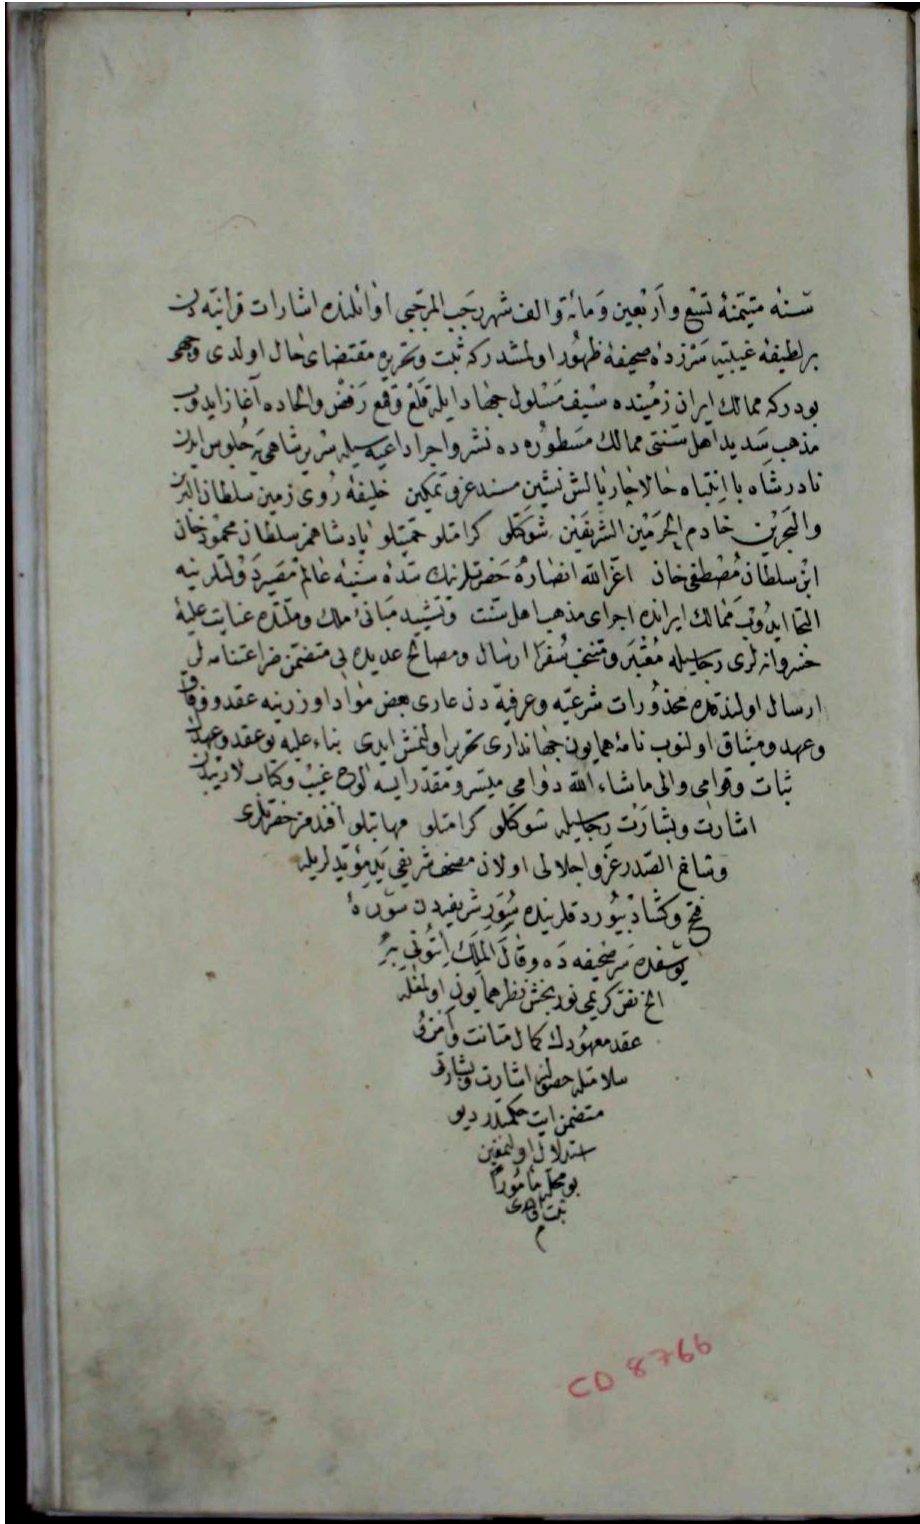 سنه متیمنهٔ تسع و اربعین و مائة و الف شهر رجب المرجبی اوائلنده اشارات قرآنیه دن
بر لطیفهٔ غیبیه سرزدهٔ صحیفهٔ ظهور اولمشدر که ثبت و تحریری مقتضای حال اولدی
بودر که ممالك ایران زمینده سیف مسلول جهاد ایله قلع و قمع رفض و الحاده آغاز ایدوب
مذهب سدید اهل سنتی ممالك مسطوره ده نشر و اجرا داعیه سیله سریر شاهی یه جلوس ایدن
نادر شاه با انتباه حالا چار بالش نشین مسند عز و تمکین خلیفهٔ روی زمین سلطان البرین
و البحرین خادم الحرمین الشریفین شوکتلو کرامتلو پادشاهمز سلطان محمود خان
ابن سلطان مصطفی خان اعز الله انصاره حضرتلرینك سدهٔ سنیهٔ عالم مصیر دولتلرینه
التجا ایدوب ممالك ایرانده اجرای مذهب اهل سنت و تشیید مبانیٔ ملك و ملتده عنایت علیهٔ
خسروانه لری رجاسیله معتبر و منتخب سفرا ارسال و مصالح عدیده یی متضمن ضراعتنامه لر
ارسال اولندقده محذورات شرعیه و عرفیه دن عاری بعض مواد اوزرینه عقد و وفاق
و عهد و میثاق اولنوب نامهٔ همایون جهانداری تحریر اولنمش ایدی بناء علیه بو عقد و عهدك
ثبات و قوامی و الی ما شاء الله دوامی میسر و مقدر ایسه لوح غیب و کتاب لاریبدن
اشارت و بشارت رجاسیله شوکتلو کرامتلو مهابتلو افندمز حضرتلری
الصدر عز و اجلالی اولان مصحف شریفی ید مؤیدلریله
فتح و کشاد بیوردقلرینده سور شریفه دن سورهٔ
یوسفده سر صحیفه ده وقال الملك ائتونی به
الخ نص کریمی نوربخش نظر همایون اولمغله
عقد معهودك کمال متانت و
سلامتله حصولنی اشارت و بشارتی
متضمن ایت حکمتدر دیو
استدلال اولنمغین
بو محله مأمورا
ثبت اولندی
م
CD 8766